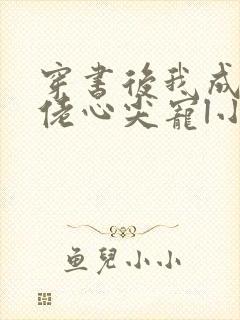 穿書後我成
佬心尖寵|小
鱼兒小小